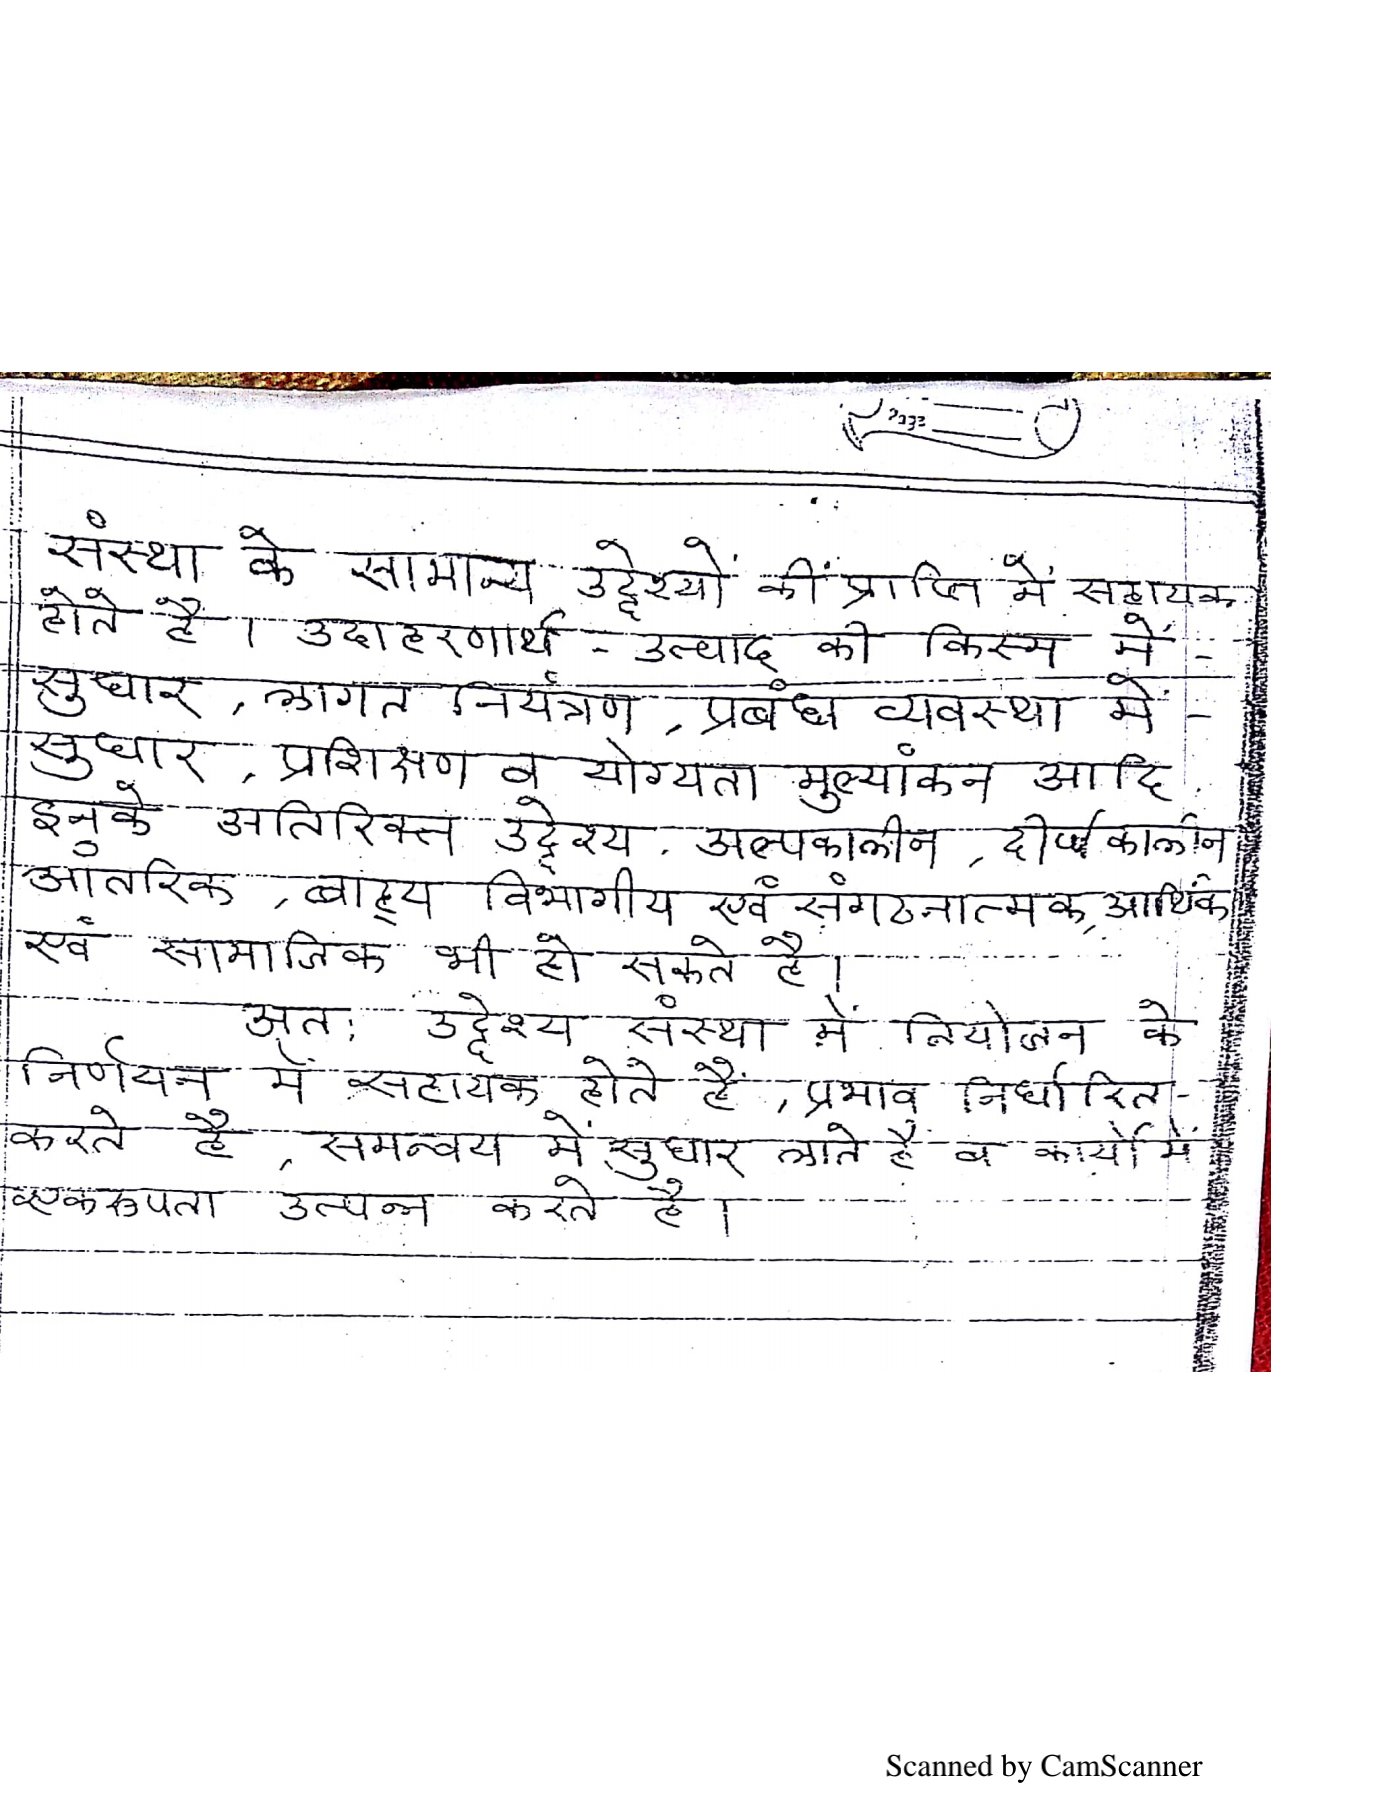 Page
संस्था के सामान्य उद्देश्यों कीं प्राप्ति में सहायक
होते है । उदाहरणार्थ - उत्पाद की किस्म में -
सुधार , लागत नियंत्रण , प्रबंध व्यवस्था में -
सुधार , प्रशिक्षण व योग्यता मुल्यांकन आदि .
इनके अतिरिक्त उद्देश्य . अल्पकालीन , दीर्घकालीन
आंतरिक , बाह्य विभागीय एवं संगठनात्मक, आर्थिक
एवं सामाजिक भी हो सकते है ।
अत: उद्देश्य संस्था में नियोजन के
निर्णयन में सहायक होते हैं , प्रभाव निर्धारित -
करते है , समन्वय में सुधार लाते हैं व कार्यों में
एकरूपता उत्पन्न करते है ।
Scanned by CamScanner